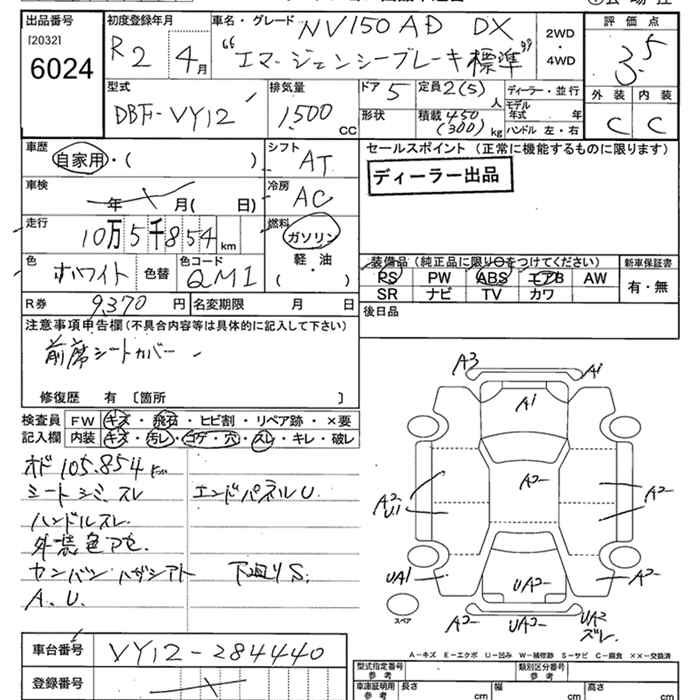 出品番号 初度登録年月 車名・グレード NV150 AD DX 2WD・4WD 評価点
[2032] 6024 R2 4月 "エマージェンシーブレーキ標準" 3.5
型式 排気量 ドア 5 定員 2(5)人 ディーラー・並行 外装 内装
DBF-VY12 1,500 CC 形状 積載 450 (300) kg モデル年式 年 ハンドル 左・右 C C
車歴 シフト セールスポイント (正常に機能するものに限ります)
自家用・( ) AT ディーラー出品
車検 年 月( 日) 冷房 AC
走行 燃料
10万5千854km ガソリン
色 色替 色コード 軽・油 装備品 (純正品に限り○をつけてください) 新車保証書
ホワイト QM1 ( ) PS PW ABS エアB AW 有・無
SR ナビ TV カワ
R券 9,370円 名変期限 月 日 後日品
注意事項申告欄(不具合内容等は具体的に記入して下さい)
前席シートカバー
修復歴 有 〔箇所 〕
検査員 FW キズ・飛石・ヒビ割・リペア跡・×要
記入欄 内装 キズ・汚レ・コゲ・穴・スレ・キレ・破レ
オド 105.854 km
シートシミ、スレ エンドパネルU.
ハンドルスレ.
外装色アセ.
カンバンハガシアト 下回りS.
A.U.
A3 A1
A1
A2 U1 A2 A2
UA1 UA2 A2
スペア A2 UA2 UA2 ズレ.
A－キズ E－エクボ U－凹み W－補修跡 S－サビ C－腐食 ××－交換済
車台番号 VY12-284440
登録番号
型式指定番号 参考 類別区分番号 参考
車庫証明用 参考 長さ cm 幅 cm 高さ cm